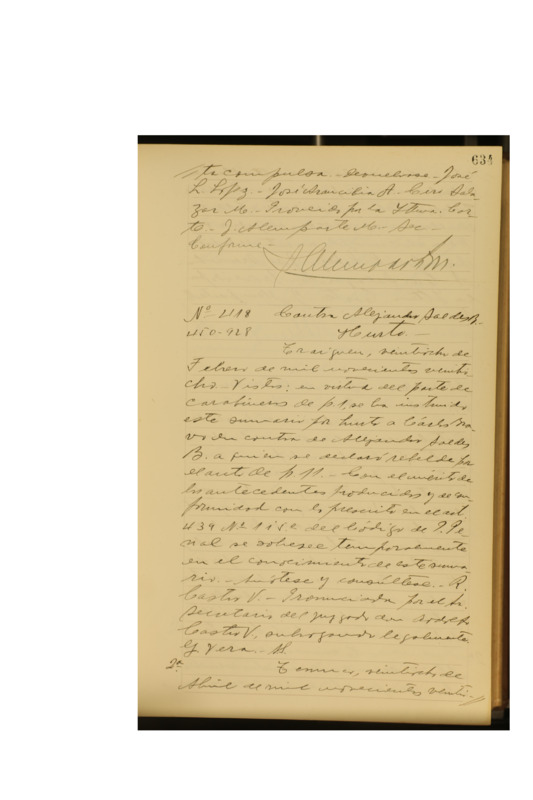 634
ta compulsa. - Devuélvase - José
L. Lopez - José Arancibia A. - Ciro Sala-
zar M. - Proveido por la Iltma. Cor-
te. - J. Alemparte M. - Sec -
Conforme -
Nº 2118 Contra Alejandro Saldes B.
450-928 Hurto. -
Traiguen, veintiocho de
Febrero de mil novecientos veinti
cho. Vistos: en virtud del parte de
carabineros de p 1, se ha instruido
este sumario por hurto a Carlos
en contra de Alejandro Saldes
B. a quien se declaró rebelde por
el auto de p. 11. - Con el mérito de
los antecedentes producidos y de con
formidad con lo prescrito en el art
434 Nº del Código de P. Pe-
nal se sobresee temporalmente
en el conocimiento de este suma-
rio. - Anótese y consúltese. - R.
Castro V. - Pronunciada por el
secretario del juzgado don Rodolfo
Castro V, subrogando legalmente
G. Vera. - S.
2ª Temuco, veintiocho de
Abril de mil novecientos veinti-